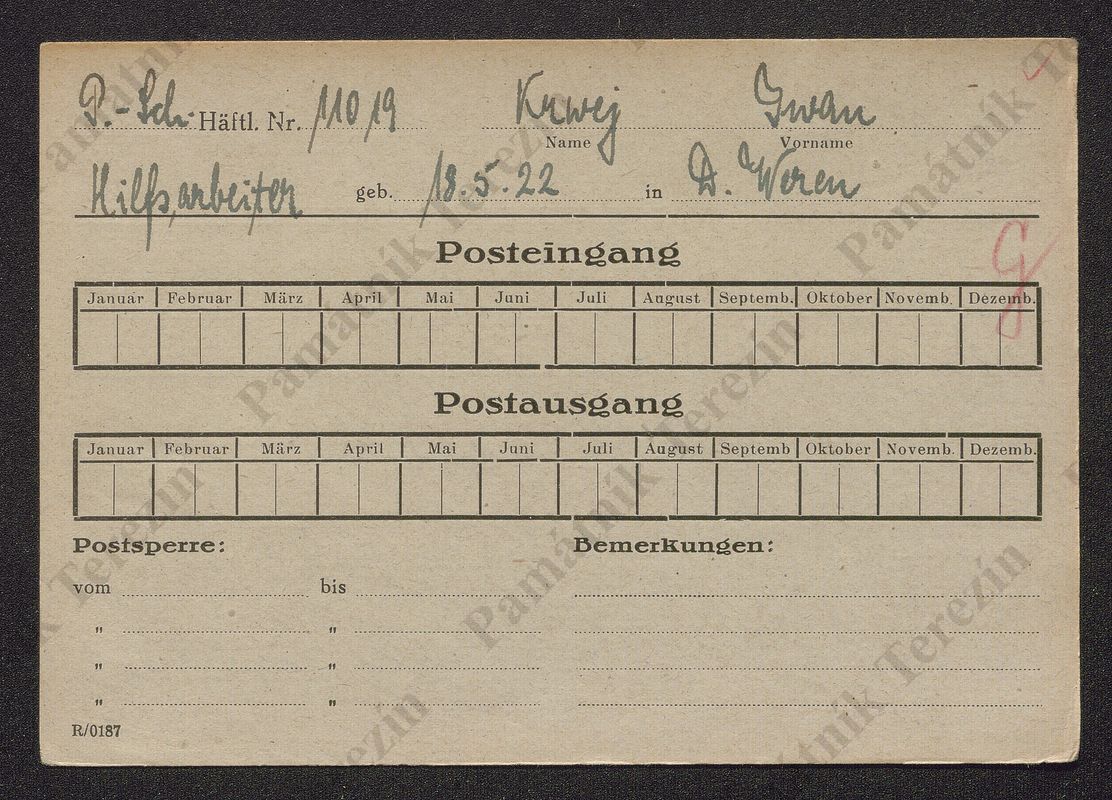 P.-Sch. Häftl. Nr. 11019 Krwej Gwan
Name Vorname
Hilfsarbeiter geb. 18.5.22 in D. Weren
Posteingang
G
Januar Februar März April Mai Juni Juli August Septemb. Oktober Novemb. Dezemb.
Postausgang
Januar Februar März April Mai Juni Juli August Septemb Oktober Novemb. Dezemb.
Postsperre: Bemerkungen:
vom bis
" "
" "
" "
R/0187
Památník Terezín